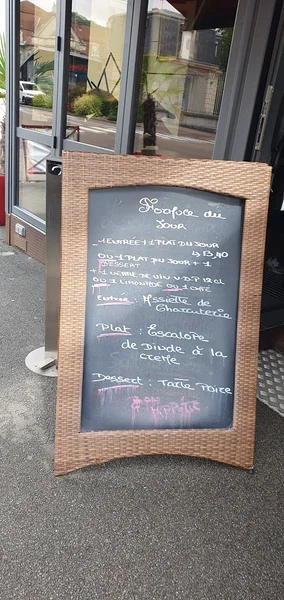 Formule du
JOUR
- 1 ENTRÉE + 1 PLAT DU JOUR
à 13,40
OU 1 PLAT DU JOUR + 1
DESSERT
+ 1 VERRE DE VIN V.D.P 12 CL
OU 1 LIMONADE OU 1 CAFÉ
Entrée : Assiette de
Charcuterie
Plat : Escalope
de Dinde à la
creme
Dessert : Tarte Poire
Bon Appétit